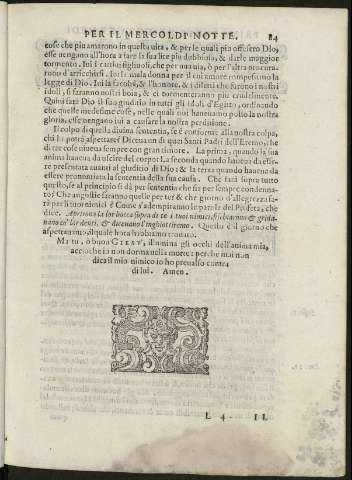 PER IL MERCOLDI NOTTE. 84
cose che piu amarono in questa vita, & per le quali piu offesero Dio,
esse uengano all'hora a fare la sua lite piu dubbiosa, & darle maggior
tormento. Iui i cattiui figliuoli, che per una uia, ò per l'altra procura-
rono d'arricchirsi. Iui la mala donna per il cui amore rompesimo la
legge di Dio. Iui la facoltà, & l'honore, & i disegni che furono i nostri
idoli, si faranno nostri boia, & ci tormenteranno piu crudelmente.
Quiui farà Dio il suo giudicio in tutti gli idoli d'Egitto, ordinando
che quelle medesime cose, nelle quali noi haueuamo posto la nostra
gloria, esse uengano a causare la nostra perditione.
Il colpo di questa diuina sententia, se è conforme alla nostra colpa,
chi lo potrà aspettare? Diceua un di quei Santi Padri dell'Eremo, che
di tre cose uiueua sempre con gran timore. La prima, quando la sua
anima haueua da uscire del corpo: La seconda quando haueua da esse-
re presentata auanti al giudicio di Dio: & la terza quando haueua da
essere pronuntiata la sententia della sua causa. Che sarà sopra tutto
questo, se al principio si dà per sententia che sia per sempre condenna-
to? Che angustie saranno quelle per te? & che giorno d'allegrezza sa-
rà per li tuoi nimici? Come s'adempiranno le parole del Profeta, che
dice. Apersono la lor bocca sopra di te i tuoi nimici, fischiarono & gridа-
rono co' lor denti, & diceuano l'inghiottiremo. Questo è il giorno che
aspettauamo, il quale hora habbiamo trouato.
Ma tu, ò buon GIESV, illumina gli occhi dell'anima mia,
accioche io non dorma nella morte: perche mai non
dica il mio nimico io ho preualso contra
di lui. Amen.
L 4 IL